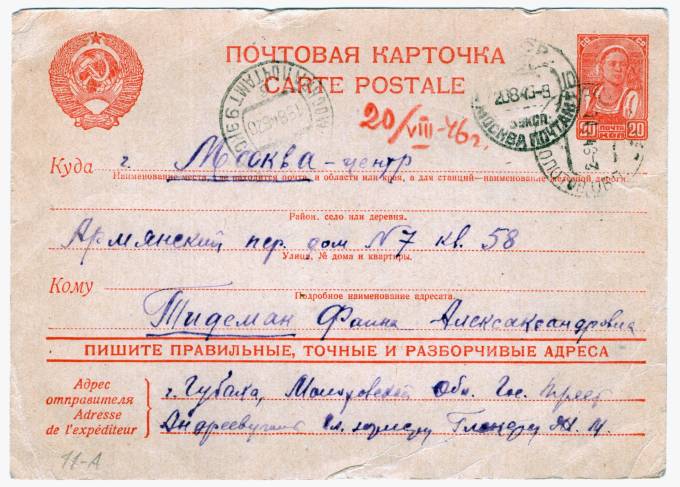 ПОЧТОВАЯ КАРТОЧКА
CARTE POSTALE
20/VIII-46г.
ПОЧТА
20 КОП 20
МОСКВА ПОЧТАМТ
Куда г. Москва-центр
Наименование места, где находится почта, и области или края, а для станций—наименование железной дороги
Район, село или деревня.
Армянский пер. дом N7 кв. 58
Улица, № дома и квартиры.
Кому
Подробное наименование адресата.
Тидеман Фаина Александровна
ПИШИТЕ ПРАВИЛЬНЫЕ, ТОЧНЫЕ И РАЗБОРЧИВЫЕ АДРЕСА
Адрес отправителя
Adresse de l'expéditeur
г. Губаха, Молотовской Обл.
11-А